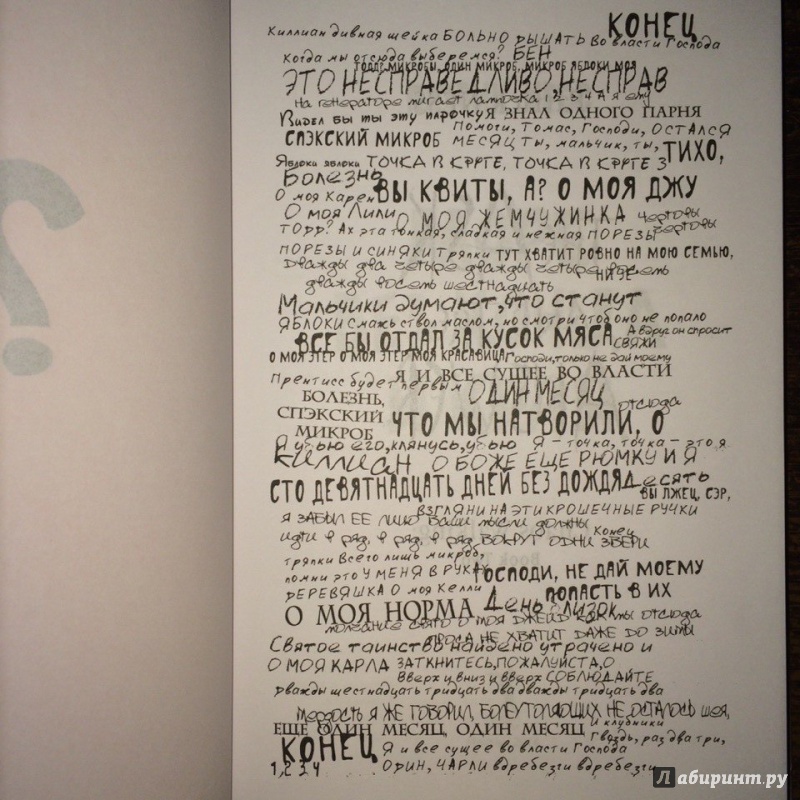 КОНЕЦ
Киллиан дивная шейка БОЛЬНО ДЫШАТЬ Во власти Господа
Когда мы отсюда выберемся? БЕН
ТОДД, МИКРОБЫ, ОДИН МИКРОБ, МИКРОБ ЯБЛОКИ МОЯ
ЭТО НЕСПРАВЕДЛИВО, НЕСПРАВ
На генераторе мигает лампочка 1 2 3 4 А я ему
Видел бы ты эту парочку Я ЗНАЛ ОДНОГО ПАРНЯ
Помоги, Томас, Господи, ОСТАЛСЯ
СПЭКСКИЙ МИКРОБ МЕСЯЦ ТЫ, мальчик, ты, ТИХО,
Яблоки яблоки ТОЧКА В КРУГЕ, ТОЧКА В КРУГЕ 3
Болезнь ВЫ КВИТЫ, А? О МОЯ ДЖУ
О моя Карен
О моя Лили О МОЯ ЖЕМЧУЖИНКА Чертовы
ТОДД? Ах эта тонкая, сладкая и нежная ПОРЕЗЫ чертовы
ПОРЕЗЫ И СИНЯКИ Тряпки ТУТ ХВАТИТ РОВНО НА МОЮ СЕМЬЮ,
Дважды два четыре дважды четыре восемь НИЗЕ
дважды восемь шестнадцать
Мальчики думают, что станут
ЯБЛОКИ Смажь ствол маслом, но смотри чтоб оно не попало
ВСЕ БЫ ОТДАЛ ЗА КУСОК МЯСА А вдруг он спросит
СВЯЖИ
О МОЯ ЭТЕР О МОЯ ЭТЕР МОЯ КРАСАВИЦА Господи, только не дай моему
Прентисс будет первым Я И ВСЕ СУЩЕЕ ВО ВЛАСТИ
БОЛЕЗНЬ, ОДИН МЕСЯЦ отсюда
СПЭКСКИЙ МИКРОБ ЧТО МЫ НАТВОРИЛИ, О
Я убью его, клянусь, убью Я – точка, точка – это я
КИЛЛИАН О БОЖЕ ЕЩЕ РЮМКУ И Я
СТО ДЕВЯТНАДЦАТЬ ДНЕЙ БЕЗ ДОЖДЯ Десять
ВЫ ЛЖЕЦ, СЭР,
ВЗГЛЯНИ НА ЭТИ КРОШЕЧНЫЕ РУЧКИ
Я ЗАБЫЛ ЕЕ ЛИЦО Ваши мысли должны
идти в ряд, в ряд, в ряд ВОКРУГ ОДНИ ЗВЕРИ Конец
тряпки Всего лишь микроб,
помни это У МЕНЯ В РУКАХ ГОСПОДИ, НЕ ДАЙ МОЕМУ
ДЕРЕВЯШКА О моя Келли ПОПАСТЬ В ИХ
О МОЯ НОРМА День близок
МОЯ ДЖЕЙД КАК ты отсюда
ПРОСА НЕ ХВАТИТ ДАЖЕ ДО ЗИМЫ
Святое таинство найдено утрачено и
О МОЯ КАРЛА ЗАТКНИТЕСЬ, ПОЖАЛУЙСТА, О
Вверх и вниз и вверх СОБЛЮДАЙТЕ
Дважды шестнадцать тридцать два дважды тридцать два
Мерзость Я ЖЕ ГОВОРИЛ, БОЛЕУТОЛЯЮЩИХ НЕ ОСТАЛОСЬ шея,
ЕЩЕ ОДИН МЕСЯЦ, ОДИН МЕСЯЦ И клубники
КОНЕЦ Гвоздь, раз два три,
Я и все сущее во власти Господа
1, 2, 3, 4 ОДИН, ЧАРЛИ вдребезги вдребезги
Лабиринт.ру